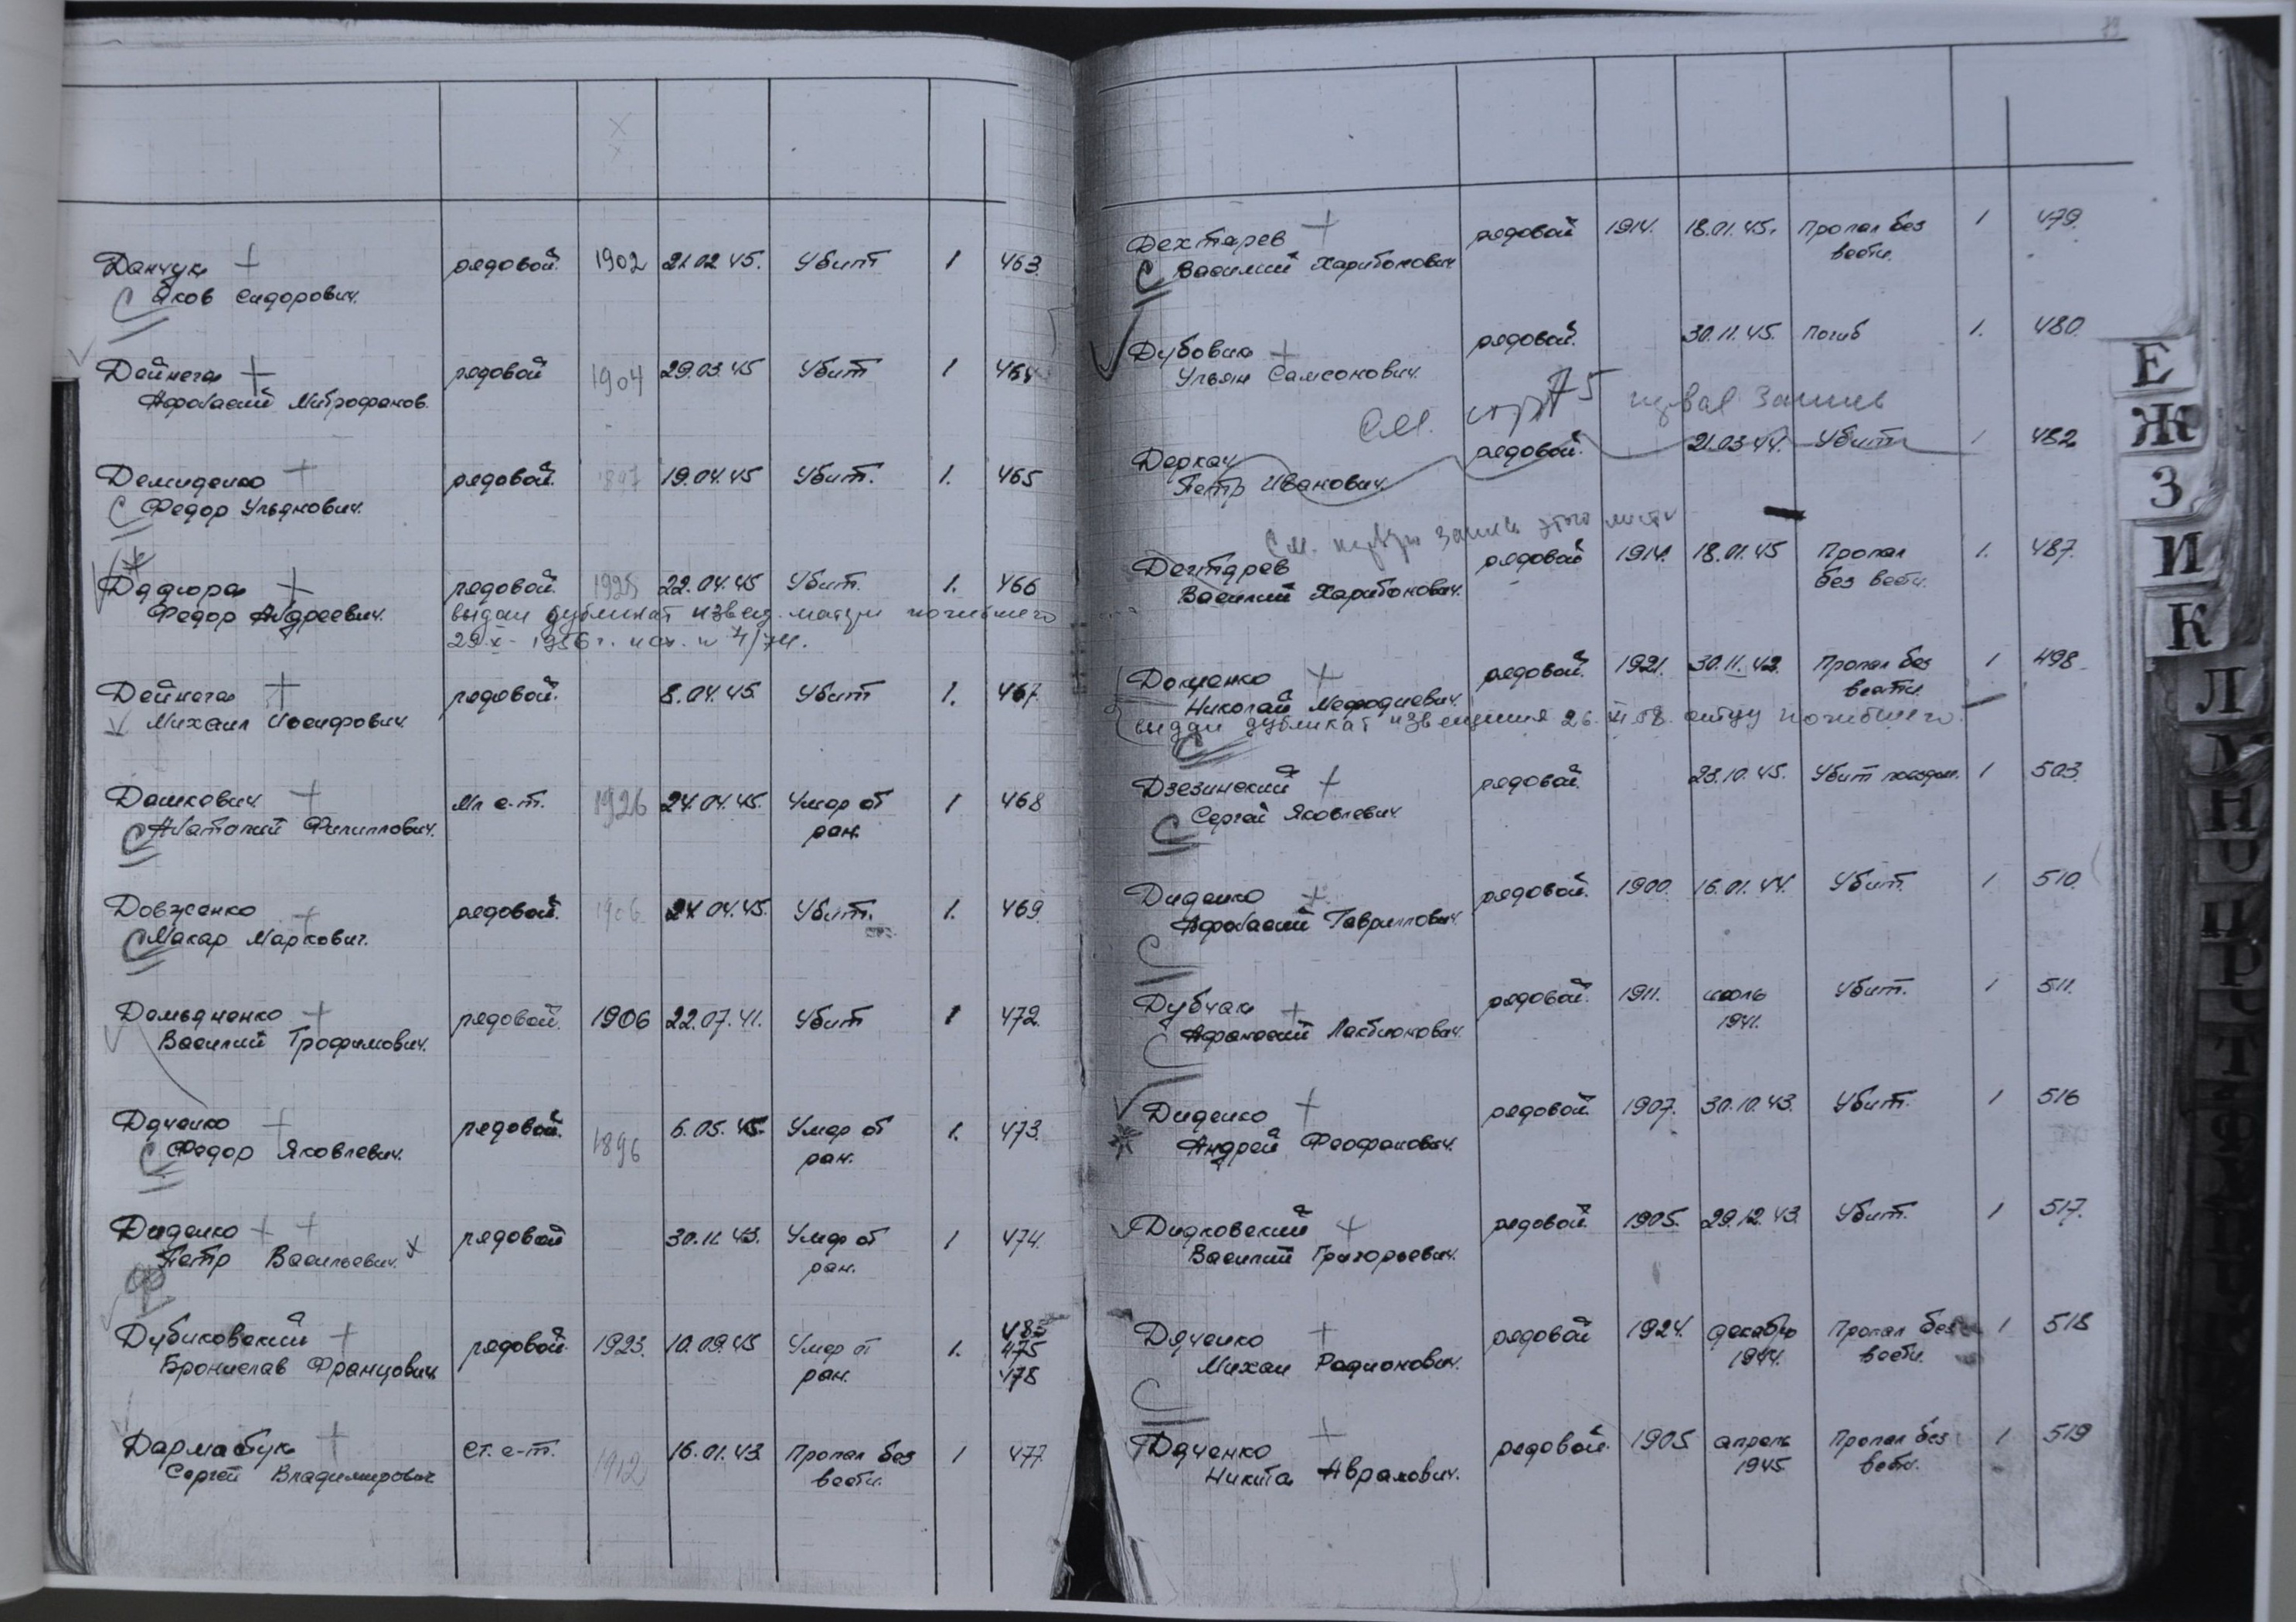 Данчук рядовой. 1902 21.02.45. Убит 1 463.
С Яков Сидорович.
Дейнега рядовой 1904 29.03.45 Убит 1 464
Афанасий Митрофанов.
Демиденко рядовой. 1897 19.04.45 Убит. 1. 465
С Федор Ульянович.
Дадюра рядовой. 1925 22.04.45 Убит. 1. 466
Федор Андреевич. выдан дубликат извещ. матери погибшего
29.X-1956 г. исх. №
Дейнега рядовой. 8.04.45 Убит 1. 467.
Михаил Иосифович.
Дашкович Мл с-т. 1926 24.04.45. Умер от 1 468
С Анатолий Филиппович. ран.
Довженко рядовой. 1906 24.04.45. Убит. 1. 469.
С Макар Маркович.
Демьяненко рядовой. 1906 22.07.41. Убит 1 472.
Василий Трофимович.
Дяченко рядовой. 1896 6.05.45. Умер от 1. 473.
С Федор Яковлевич. ран.
Диденко рядовой 30.11.43. Умер от 1 474.
Петр Васильевич. ран.
Дубиковский рядовой. 1923. 10.09.45 Умер от 1. 485
475
Бронислав Францович ран. 478
Дармабук ст. с-т. 1912 16.01.43 Пропал без 1 477.
Сергей Владимирович вести.
Дехтарев рядовой 1914. 18.01.45. Пропал без 1 479.
С Василий Харитонович вести.
Дубовик рядовой. 30.11.45. погиб 1. 480.
Ульян Самсонович.
См. стр 75 первая запись
Деркач рядовой. 21.03.44. Убит 1 482
Петр Иванович.
См. первую запись этого листа
Дегтярев рядовой 1914. 18.01.45 Пропал 1. 487.
Василий Харитонович. без вести.
Доценко рядовой. 1921. 30.11.42. Пропал без 1 498
Николай Мефодиевич. вести.
выдан дубликат извещения 26.VI.58. отцу погибшего.
С
Дзезинский рядовой. 23.10.45. Убит поездом. 1 503.
С Сергей Яковлевич
Диденко рядовой. 1900. 16.01.44. Убит. 1 510.
Афанасий Гаврилович.
С
Дубчак рядовой. 1911. июль Убит. 1 511.
1941.
С Афанасий Лактионович.
Диденко рядовой. 1907. 30.10.43. Убит. 1 516
Андрей Феофанович.
Дидковский рядовой. 1905. 29.12.43. Убит. 1 517.
Василий Григорьевич.
Дяченко рядовой 1924. декабрь Пропал без 1 518
Михаил Родионович. 1944. вести.
С
Дяченко рядовой. 1905. апрель Пропал без 1 519
Никита Аврамович. 1945. вести.
Е
Ж
З
И
К
Л
М
Н
О
П
Р
С
Т